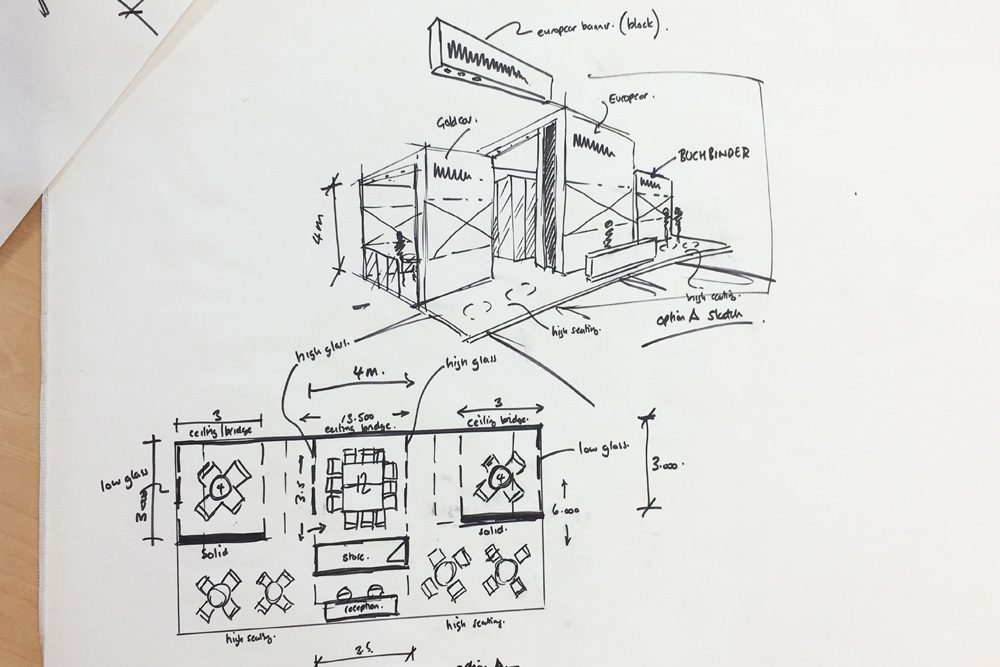 europcar banner. (block).
Europcar.
Goldcar.
BUCHBINDER
4m
high seating.
high seating.
option A sketch
high glass.
high glass
4m.
3
13.500
3
ceiling bridge
ceiling bridge.
ceiling bridge.
low glass
low glass.
3.000
4
3.5
12
4
6.000
3.000
solid
solid.
store.
reception.
high seating.
high seating.
3.5.
option A